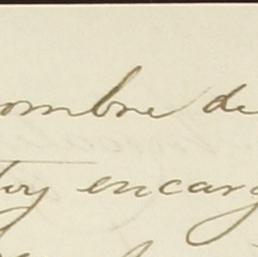 ombre de
toy encarg